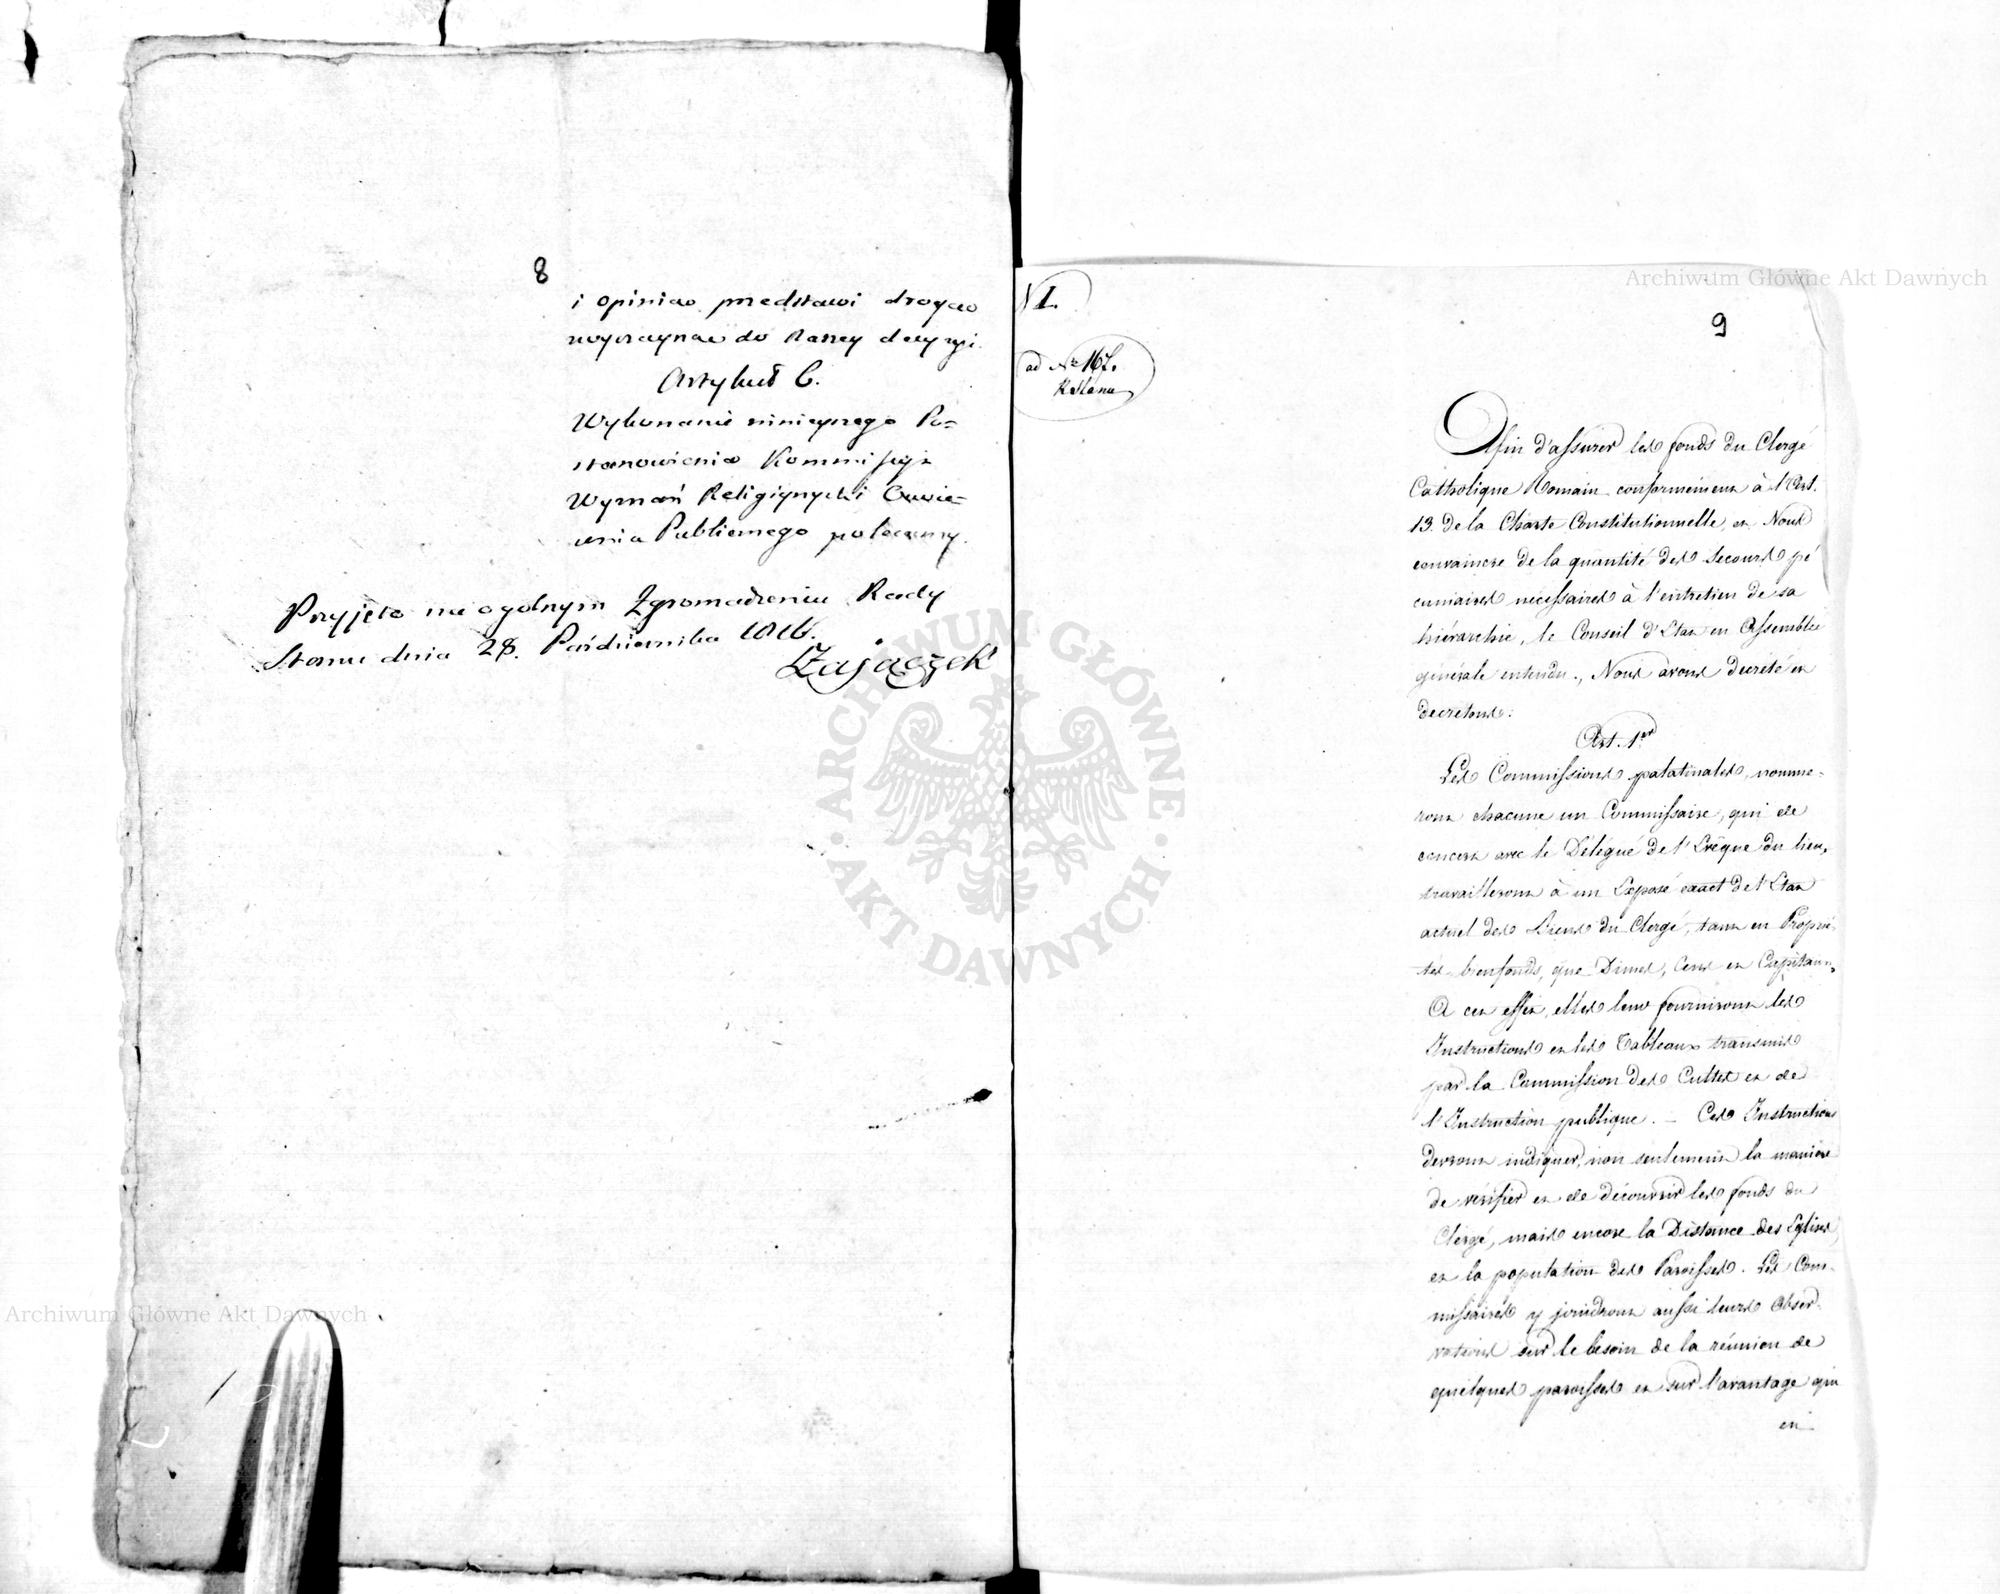 8
i opinią przedstawi drogą
wyrazyną do Naszey decyzyi.
Artykuł 6.
Wykonanie ninieyszego Po=
stanowienia Kommissyi
Wyznań Religiynych i Oświe=
cenia Publicznego polecamy.
Przyjęto na ogólnym Zgromadzeniu Rady
Stanu dnia 28. Października 1816.
Zajączek
N I.
ad No 167.
R. Stanu
9
Afin d'assurer les fonds du Clergé
Catholique Romain conformément à l'Art.
13. de la Charte Constitutionnelle, et Nous
convaincre de la quantité des secours pé
cuniaires nécessaires à l'entretien de sa
hiérarchie, le Conseil d'Etat en Assemblée
générale entendu, Nous avons décrété et
decretons:
Art. 1er
Les Commissions palatinales, nomme-
ront chacune un Commissaire, qui de
concert avec le Délégué de l'Evêque du lieu,
travailleront à un Exposé exact de l'Etat
actuel des Biens du Clergé, tant en Proprié-
tés bienfonds, que Dimes, Cens et Capitaux,
A cet effet, elles leur fourniront les
Instructions et les Tableaux transmis
par la Commission des Cultes et de
l'Instruction publique. — Ces Instructions
devront indiquer, non seulement la manière
de vérifier et de découvrir les fonds du
Clergé, mais encore la Distance des Eglises,
et la population des Paroisses. Les Com-
missaires y joindront aussi leurs Obser-
vations sur le besoin de la réunion de
quelques paroisses et sur l'avantage qui
en
Archiwum Główne Akt Dawnych
Archiwum Główne Akt Dawnych
ARCHIWUM GŁÓWNE
AKT DAWNYCH